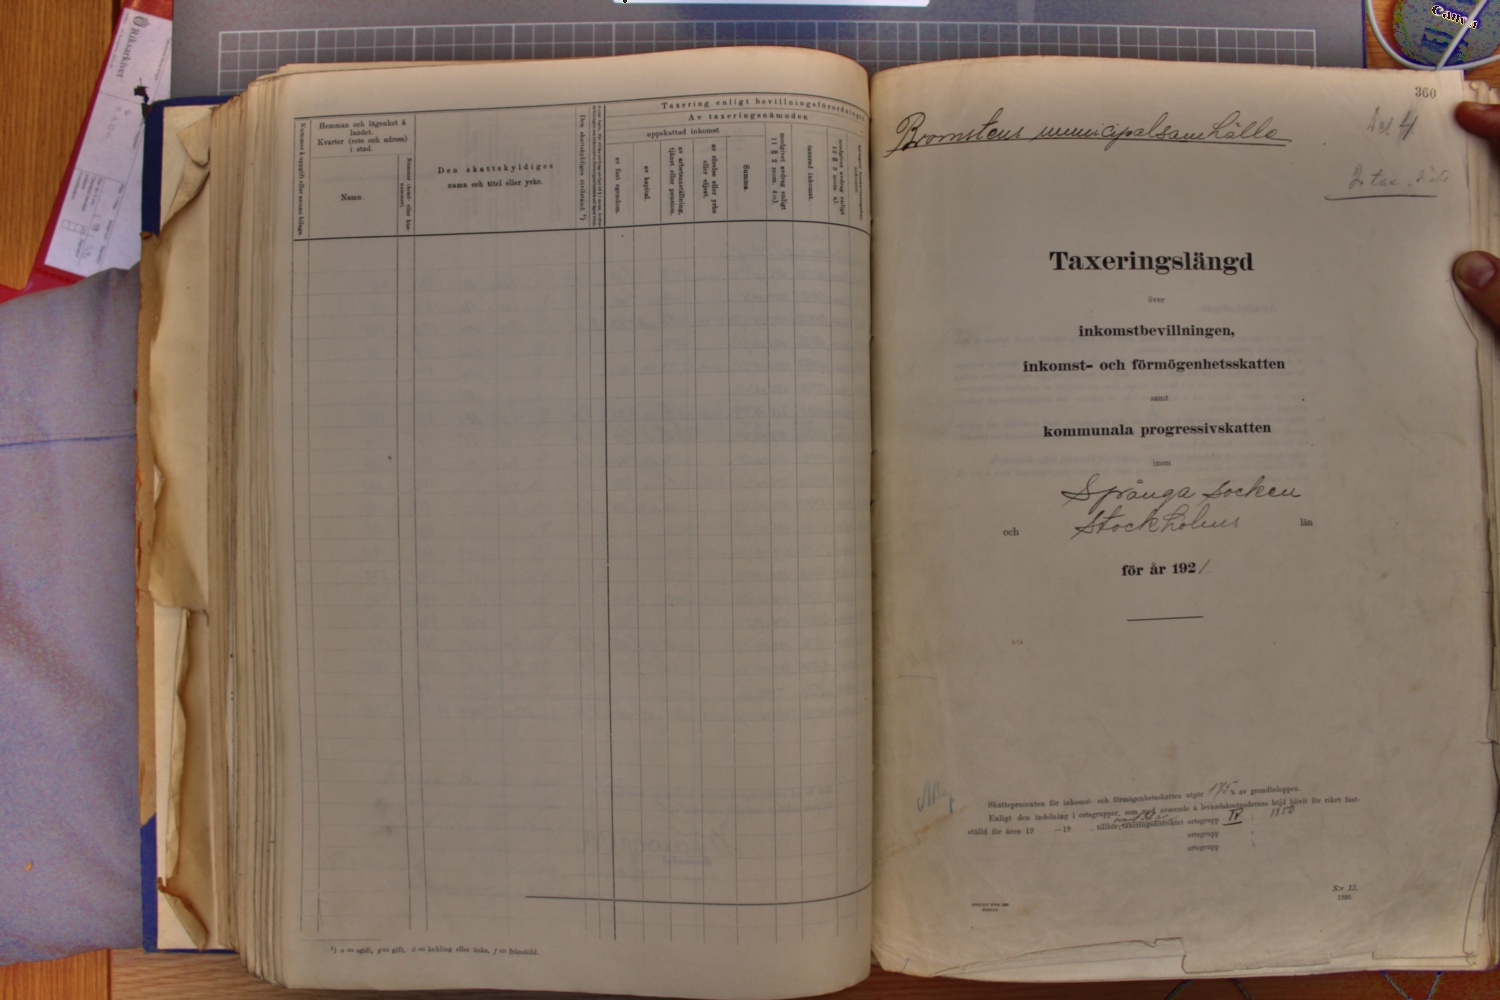 Riksarkivet
Taxering enligt bevillningsförordningen
Av taxeringsnämnden
uppskattad inkomst
Hemman och lägenhet å
landet.
Kvarter (rote och adress)
i stad.
Namn.
Den skattskyldiges
namn och titel eller yrke.
Den skattskyldiges civilstånd. *)
av fast egendom.
av kapital.
av arbetsanställning,
tjänst eller pension.
av rörelse eller yrke
eller eljest.
Summa.
taxerad inkomst.
*) o = ogift, g = gift, ä = änkling eller änka, f = frånskild.
360
Bromstens municipalsamhälle
Del 4
Taxeringslängd
över
inkomstbevillningen,
inkomst- och förmögenhetsskatten
samt
kommunala progressivskatten
inom
Spånga socken
och Stockholms län
för år 1921
Skatteprocenten för inkomst- och förmögenhetsskatten utgör 175 % av grundbeloppen.
Enligt den indelning i ortsgrupper, som med avseende å levnadskostnadernas höjd blivit för riket fast-
ställd för åren 19 —19 , tillhör taxeringsdistriktet ortsgrupp IV
ortsgrupp
ortsgrupp
N:r 12.
1920.